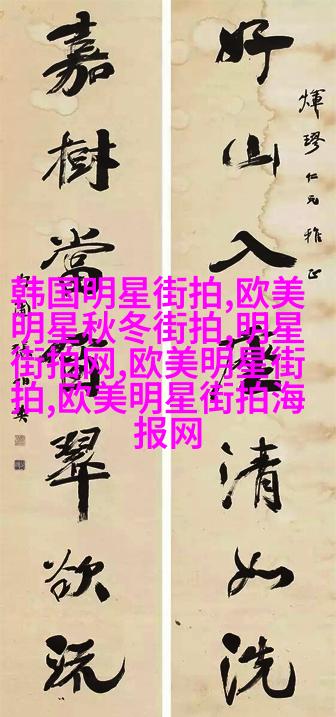 煇璆仁兄雅正
好山入座清如洗
嘉樹當窗翠欲流
韩国明星街拍,欧美
明星秋冬街拍,明星
街拍网,欧美明星街
拍,欧美明星街拍海
报网